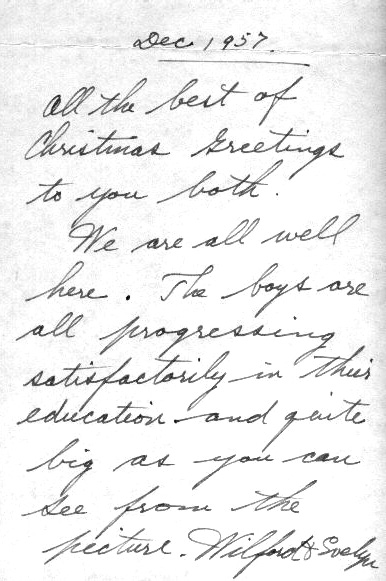 Dec, 1957.
All the best of
Christmas Greetings
to you both.
We are all well
here. The boys are
all progressing
satisfactorily in their
education and quite
big as you can
see from the
picture. Wilford & Evelyn